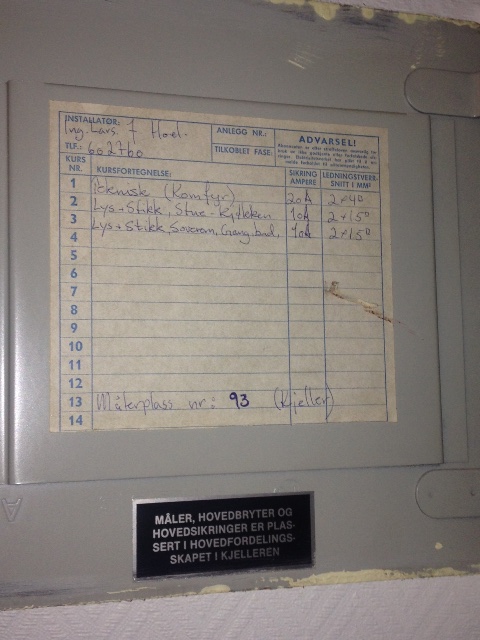 INSTALLATØR:
Ing. Lars. 7 Hoel.
TLF.: 602760
ANLEGG NR.:
TILKOBLET FASE:
ADVARSEL!
KURS NR. KURSFORTEGNELSE: SIKRING AMPERE LEDNINGSTVERR-SNITT I MM²
1 (Komfyr) 20A 2×4□
2 Lys + Stikk, Stue - Kjøkken 10A 2×15□
3 Lys + Stikk, Soverom, Gang, bad, 10A 2×15□
4
5
6
7
8
9
10
11
12
13 Målerplass nr: 93 (Kjeller)
14
MÅLER, HOVEDBRYTER OG
HOVEDSIKRINGER ER PLAS-
SERT I HOVEDFORDELINGS-
SKAPET I KJELLEREN